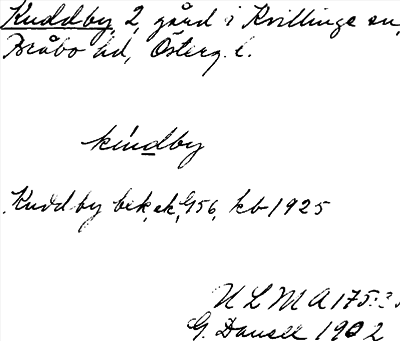 Kuddby, 2, gård i Kvillinge sn,
Bråbo hd, Österg. l.
Kuddby bek, ek, 956, kb 1925
ULMA 175:
G. Danell 1902